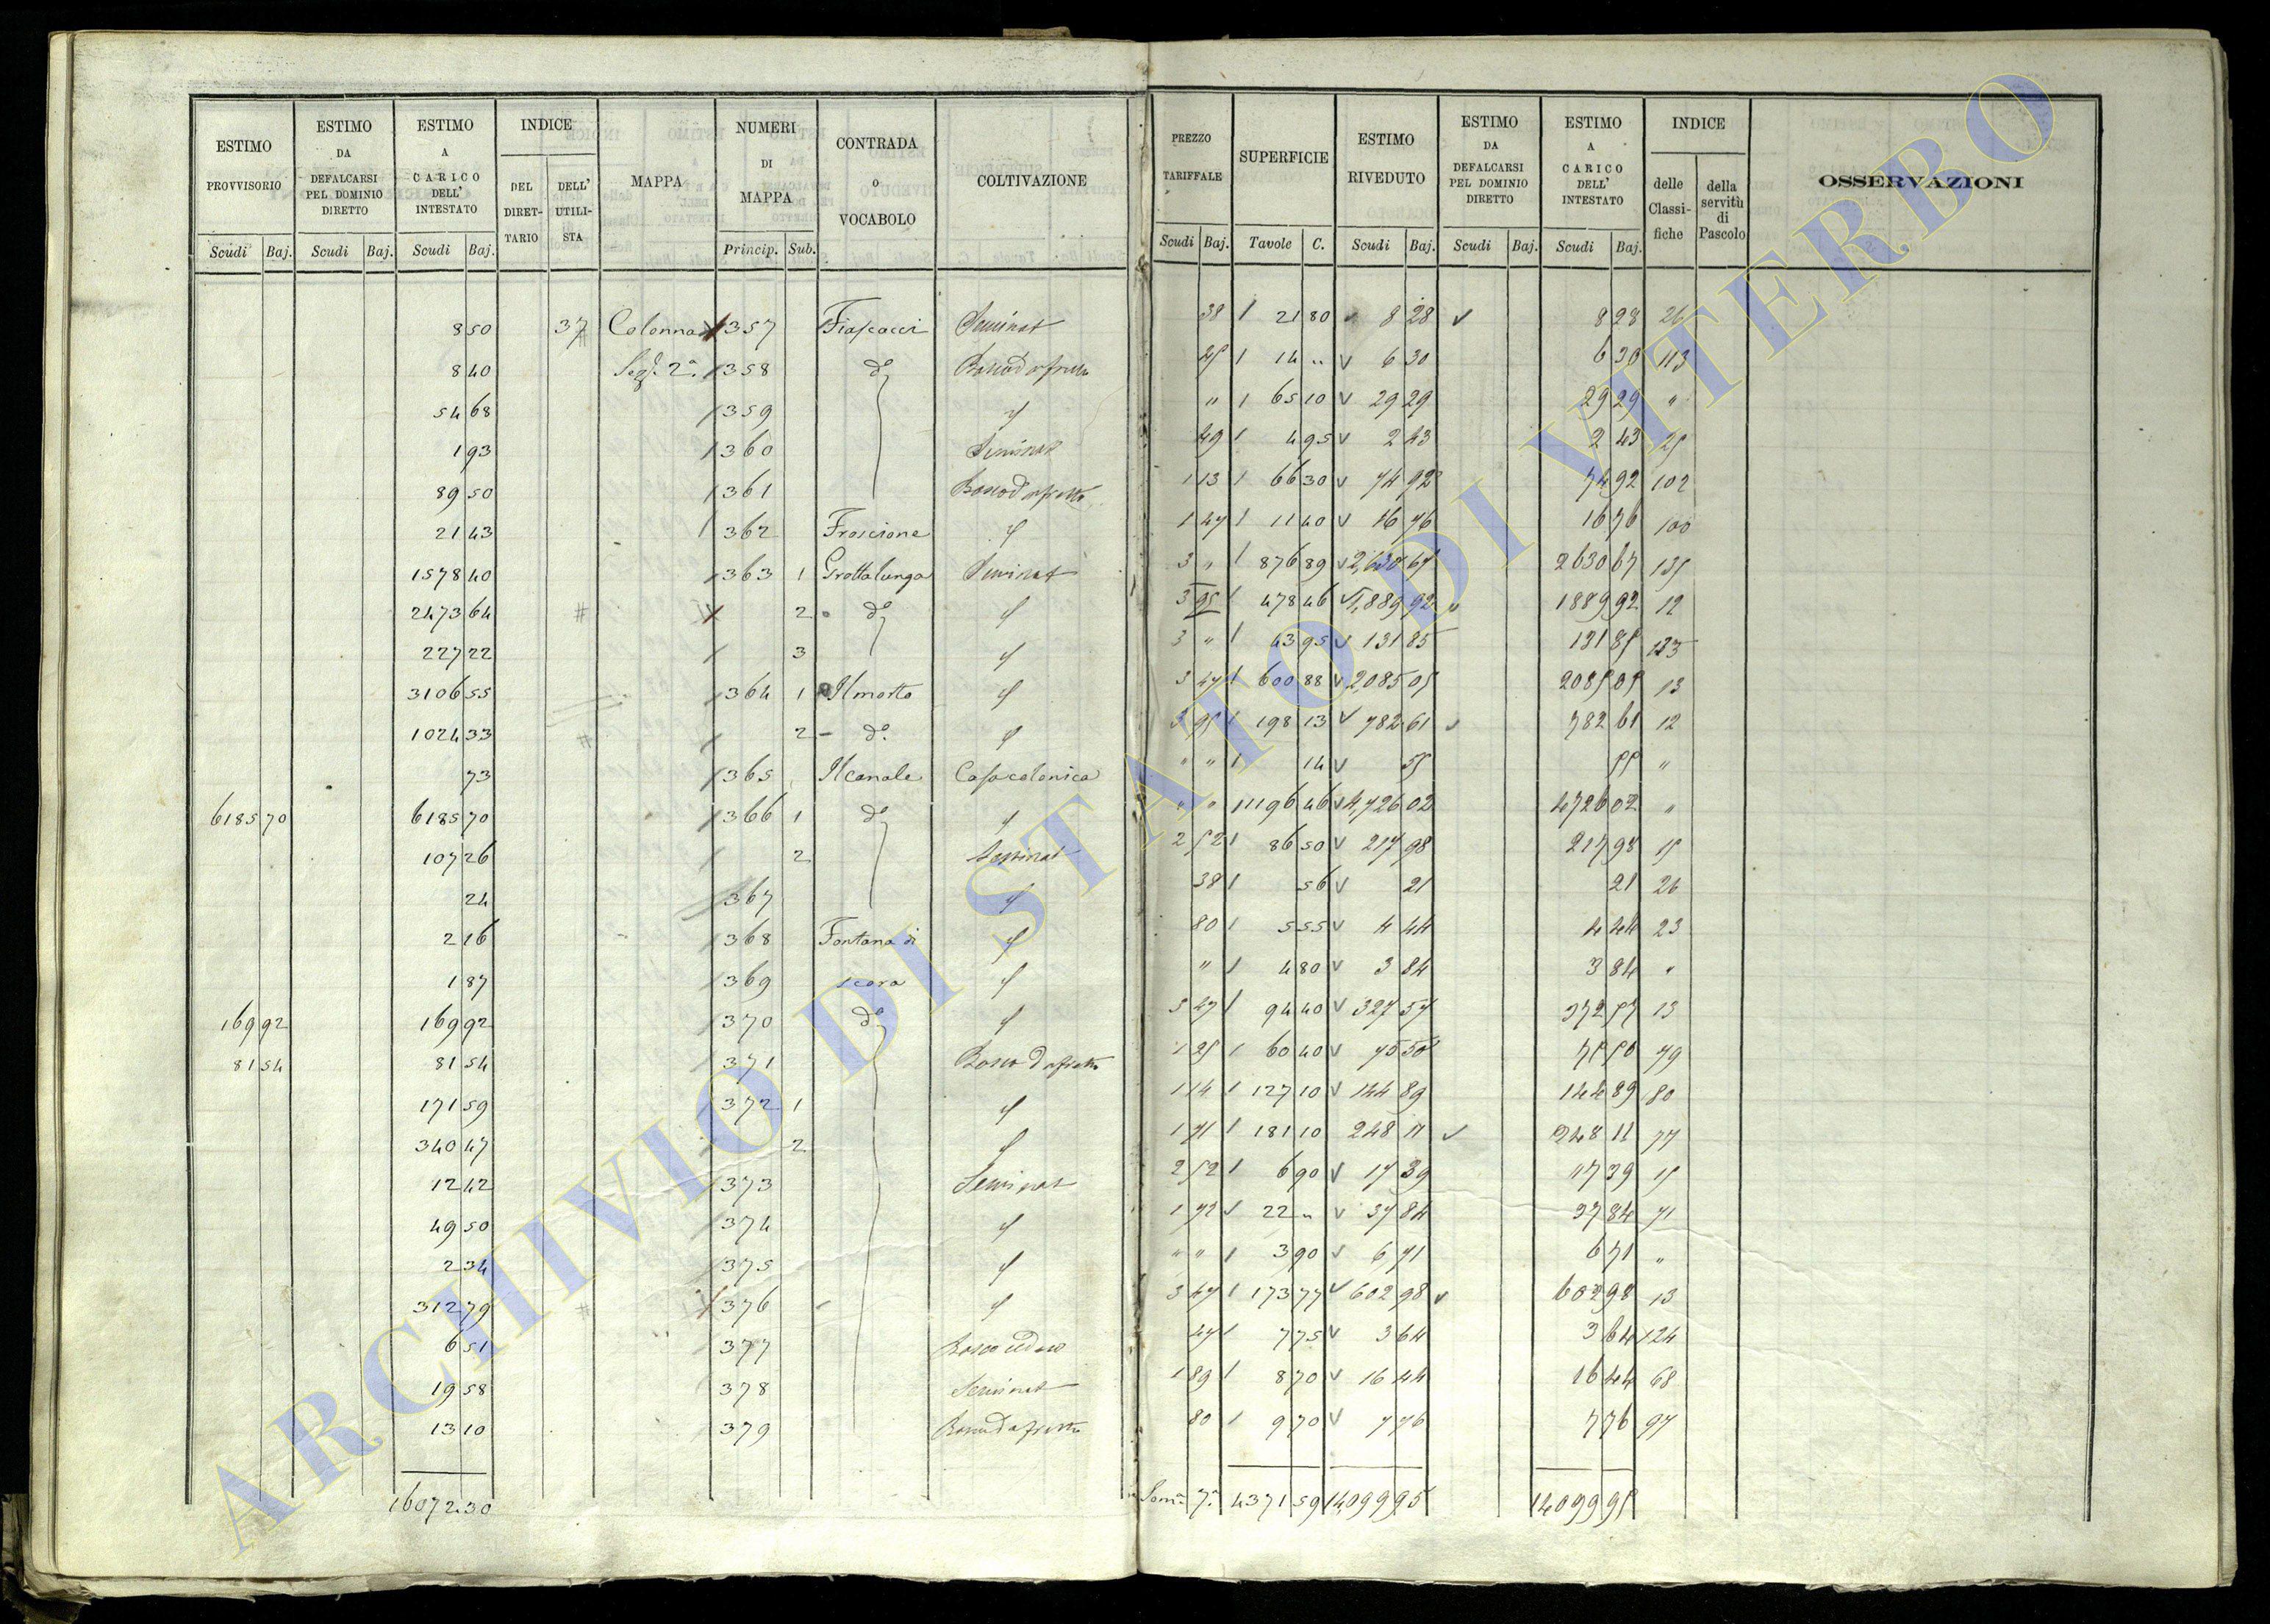 ESTIMO PROVVISORIO | ESTIMO DA DEFALCARSI PEL DOMINIO DIRETTO | ESTIMO A CARICO DELL' INTESTATO | INDICE DEL DIRETTARIO | DELL' UTILISTA | MAPPA | NUMERI DI MAPPA | CONTRADA O VOCABOLO | COLTIVAZIONE | PREZZO TARIFFALE | SUPERFICIE | ESTIMO RIVEDUTO | ESTIMO DA DEFALCARSI PEL DOMINIO DIRETTO | ESTIMO A CARICO DELL' INTESTATO | INDICE delle Classifiche | della servitù di Pascolo | OSSERVAZIONI
Scudi Baj. | Scudi Baj. | Scudi Baj. | Princip. Sub. | Scudi Baj. | Tavole C. | Scudi Baj. | Scudi Baj. | Scudi Baj.
8 50 37 Colonna 357 Seminat 38 21 80 8 28 8 28 26
8 40 Sez. 2ª 358 d° 14 " 6 30 6 30 113
54 68 359 " 65 10 29 29 29 29 "
1 93 360 Seminat 49 4 95 2 43 2 43 25
89 50 361 1 13 66 30 74 92 74 92 102
21 43 362 Froscione 1 47 11 40 16 76 16 76 100
1578 40 363 1 Grottalunga Seminat 3 " 876 89 2,630 67 2630 67 135
2473 64 2 d° 3 95 478 46 1,889 92 1889 92 12
227 22 3 3 " 43 95 131 85 131 85 123
3106 55 364 1 Il morto 3 47 600 88 2,085 05 2085 05 13
1024 33 2 d° 3 95 198 13 782 61 782 61 12
73 365 Il canale Casa colonica " " 14 55 55 "
6185 70 6185 70 366 1 d° " " 1196 46 4,726 02 4726 02 "
107 26 2 Seminat 2 52 86 50 217 98 217 98 15
24 367 38 56 21 21 26
2 16 368 Fontana di 80 5 55 4 44 4 44 23
1 87 369 scara " 4 80 3 84 3 84 "
169 92 169 92 370 d° 3 47 94 40 327 57 327 57 13
81 54 81 54 371 1 25 60 40 75 50 75 50 79
171 59 372 1 1 14 127 10 144 89 144 89 80
340 47 2 181 10 248 11 248 11 77
12 42 373 Seminat 2 52 6 90 17 39 17 39 15
49 50 374 1 72 22 " 37 84 37 84 71
2 34 375 " " 3 90 6 71 6 71 "
312 79 376 3 47 173 77 602 98 602 98 13
6 51 377 Bosco ceduo 47 7 75 3 64 3 64 124
19 58 378 Seminat 1 89 8 70 16 44 16 44 68
13 10 379 80 9 70 7 76 7 76 97
16072 30 Somª 7ª 4371 59 14099 95 14099 95
ARCHIVIO DI STATO DI VITERBO